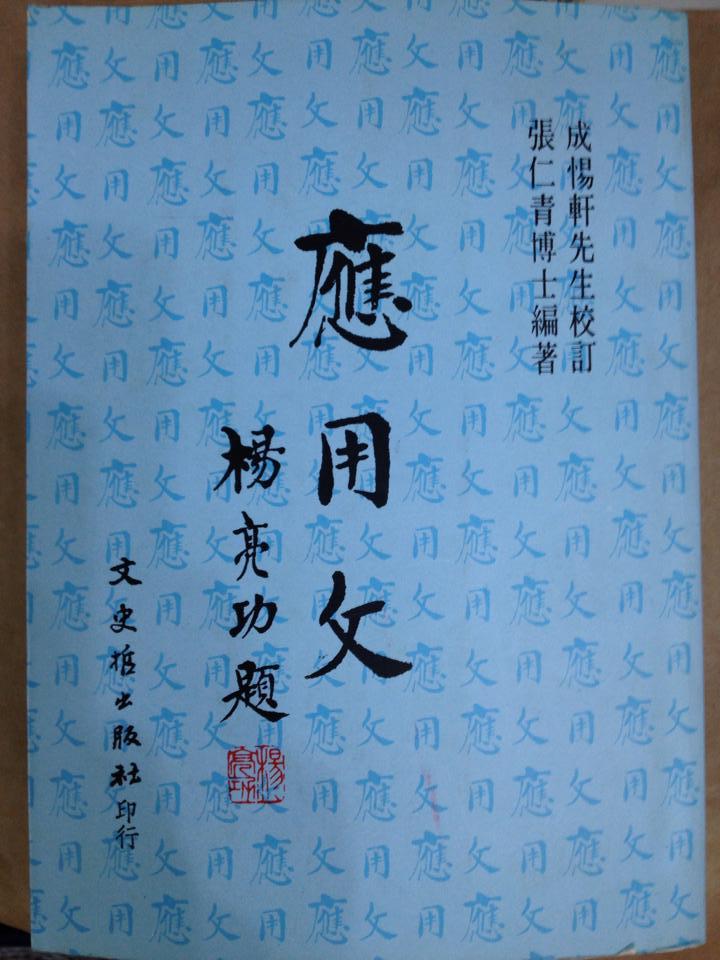 成惕軒先生校訂
張仁青博士編著
應用文
楊亮功題
楊亮功
文史哲出版社印行